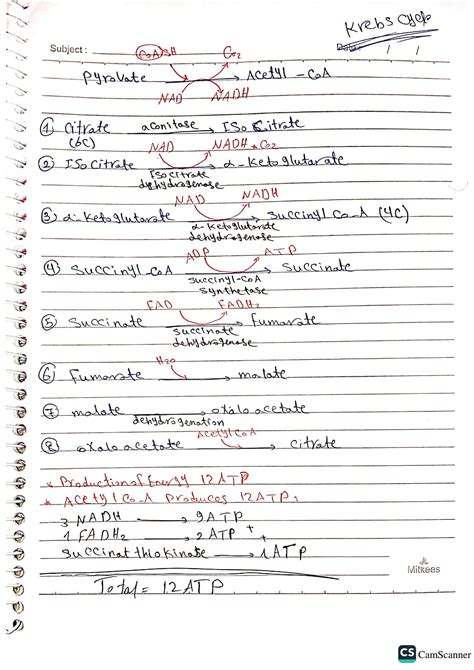 Krebs Cycle
Subject :
Date : / /
CoASH Co2
pyrovate → Acetyl-CoA
NAD NADH
① Citrate aconitase → ISo Citrate
(6C)
NAD NADH + Co2
② ISo Citrate → α-Ketoglutarate
ISo citrate
dyhydrogenase
NAD NADH
③ α-Ketoglutarate → Succinyl Co-A (4C)
α-Ketoglutarate
dehydrogenase
ADP ATP
④ Succinyl-CoA → Succinate
succinyl-CoA
synthetase
FAD FADH2
⑤ Succinate → Fumarate
succinate
dehydrogenase
H2O
⑥ Fumarate → malate
⑦ malate → oxaloacetate
dehydrogenation
Acetyl CoA
⑧ oxaloacetate → citrate
* Production of Energy 12 ATP
* Acetyl Co-A Produces 12 ATP,
3 NADH → 9 ATP
1 FADH2 → 2 ATP +
Succinat thiokinase → 1 ATP
Mitkees
Total = 12 ATP
CS CamScanner